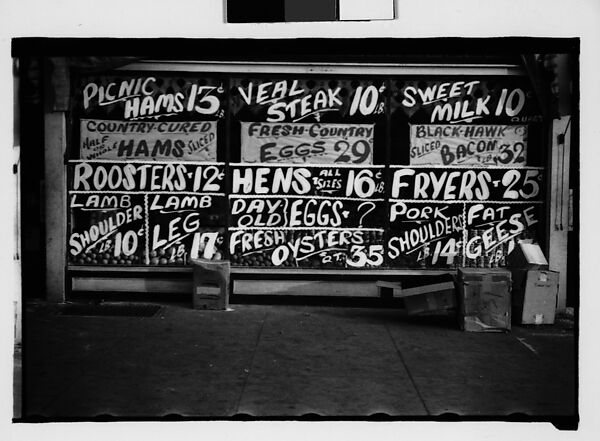 PICNIC
HAMS 13¢
LB.
VEAL
STEAK 10¢
LB.
SWEET
MILK 10¢
QUART
COUNTRY-CURED
HALF OR WHOLE HAMS SLICED
FRESH-COUNTRY
EGGS 29¢
BLACK-HAWK
SLICED BACON LB. 32
ROOSTERS-12¢
LB.
HENS ALL SIZES 16¢
LB.
FRYERS-25¢
LB.
LAMB
SHOULDER
LB. 10¢
LAMB
LEG
LB. 17¢
DAY OLD EGGS-?
FRESH OYSTERS
QT. 35
PORK
SHOULDERS
LB. 14¢
FAT
GEESE